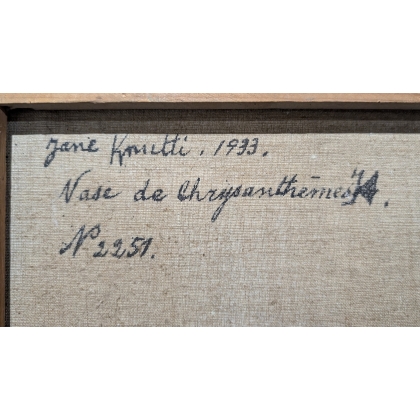 Jane Knutti. 1933.
Vase de Chrysanthèmes
Nº 2251.